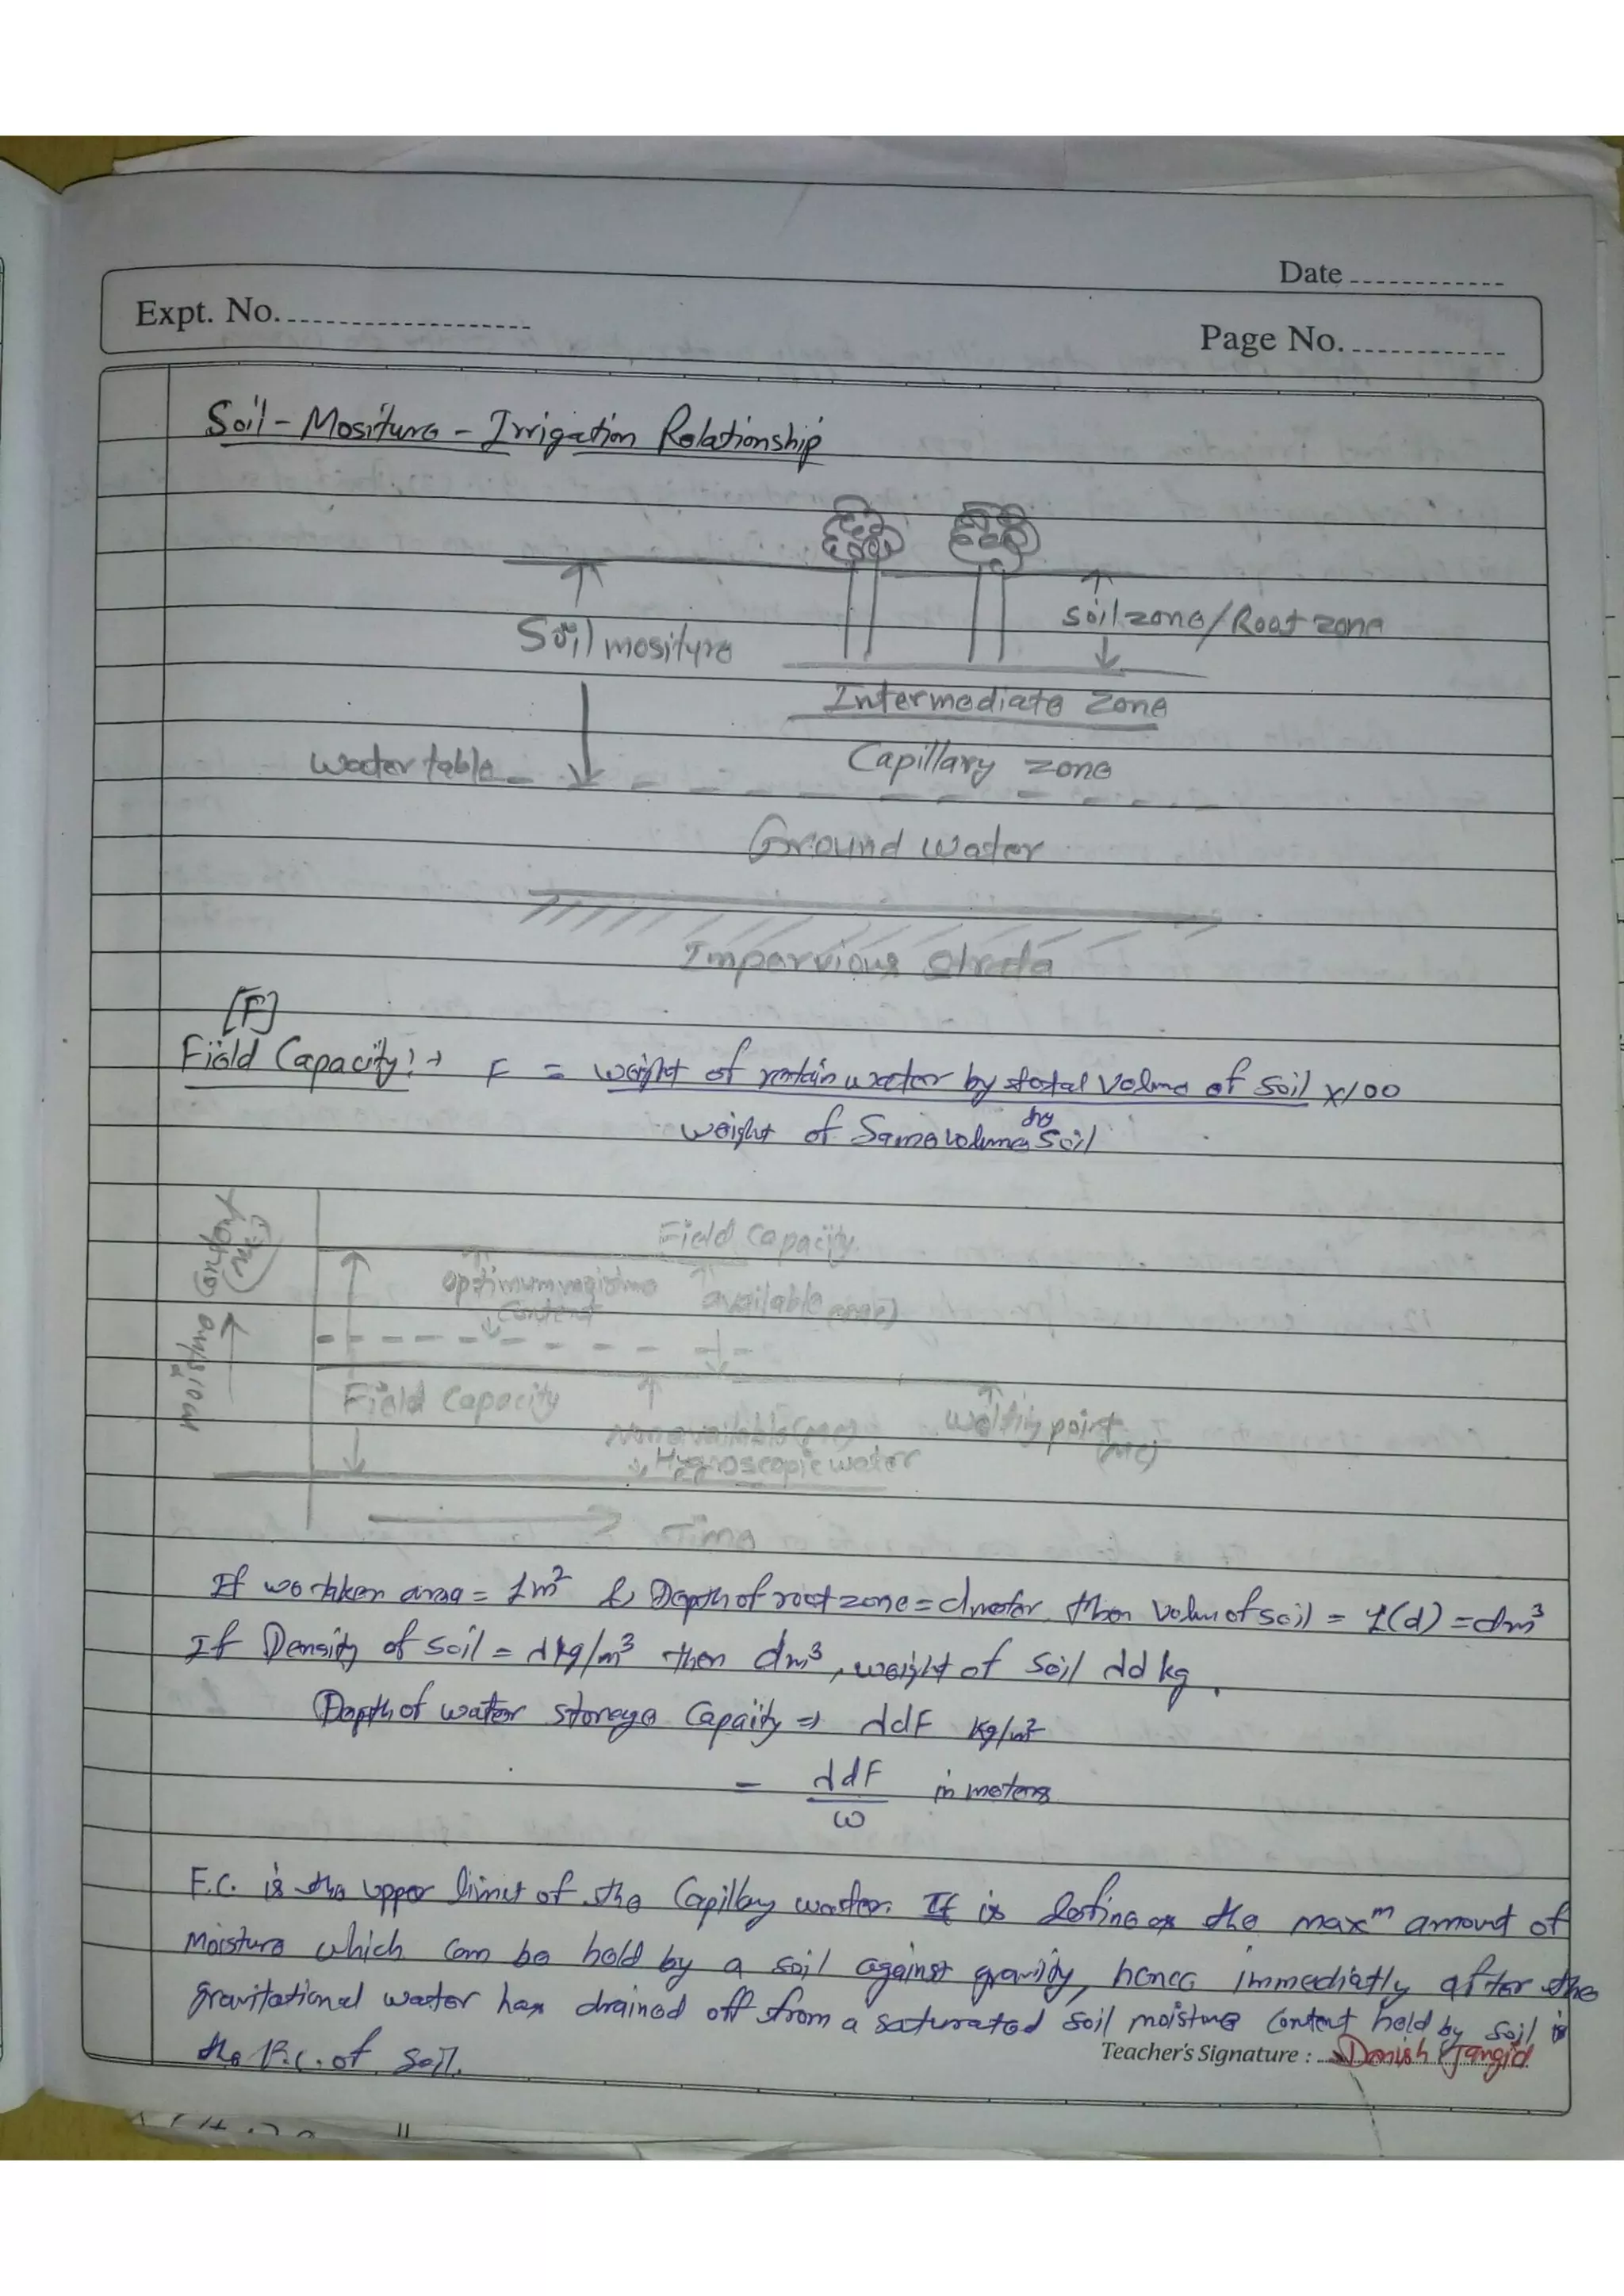 Date
Expt. No.
Page No.
Soil - Mositure - Irrigation Relationship
Soil mositure
Soil zone/Root zone
Intermediate Zone
Water table
Capillary zone
Ground Water
Impervious Strata
[F]
Field Capacity :→ F = weight of retain water by total volume of soil x100
weight of Same volume dry Soil
Moisture Content (mc)
Field Capacity
optimum moisture Content
available (mc)
Field Capacity
Non available (mc)
Hygroscopic water
Welting point (mc)
Time
If we taken area = 1m² & Depth of root zone = d meter then Volum of soil = 1(d) = dm³
If Density of soil = d kg/m³ then dm³, weight of Soil dd kg.
Depth of water storege Capaity ⇒ ddF kg/m²
= ddF/ω in meters
F.C. is the upper limit of the Capillay water. It is define as the maxᵐ amount of
Moisture which can be hold by a soil against gravity, hence immediatly after the
gravitational water has drained off from a saturated soil moisture Content held by soil is
the F.C. of Soil.
Teacher's Signature : Danish Jangid